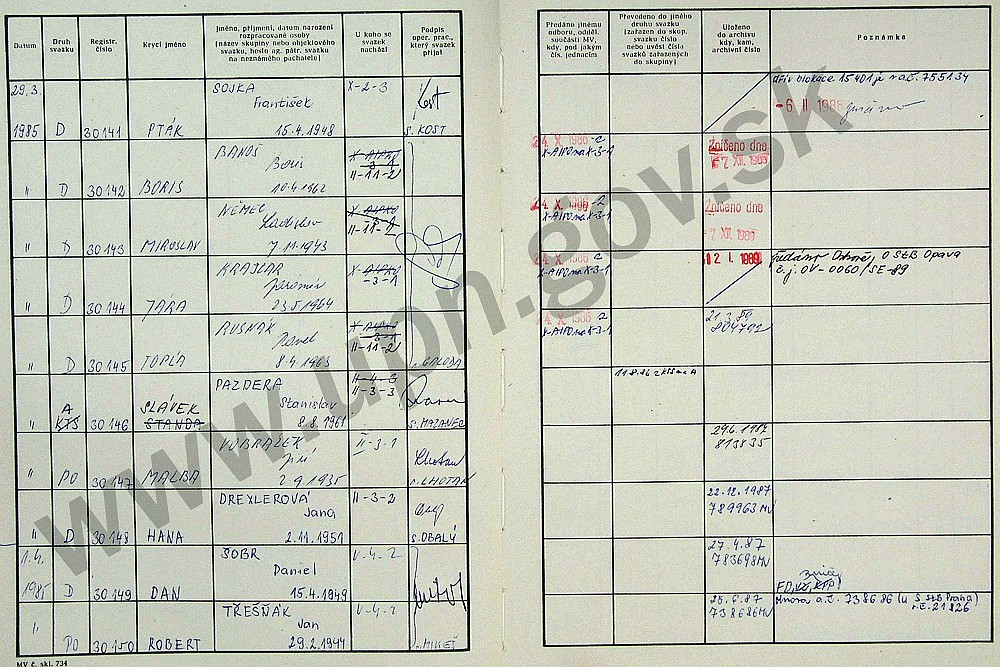 Datum
Druh svazku
Registr. číslo
Krycí jméno
Jméno, příjmení, datum narození
rozpracované osoby
(název skupiny nebo objektového
svazku, heslo ag. pátr. svazku
na neznámého pachatele)
U koho se
svazek
nachází
Podpis
oper. prac.,
který svazek
přijal
Předáno jinému
odboru, odděl.
součásti MV,
kdy, pod jakým
čís. jednacím
Převedeno do jiného
druhu svazku
(zařazen do skup.
svazku číslo
nebo uvést čísla
svazků zařazených
do skupiny)
Uloženo
do archivu
kdy, kam,
archivní číslo
Poznámka
29.3. SOJKA X-2-3
František
1985 D 30141 PTÁK 15.4.1948 s. KOST
-6 II 1986
BANOŠ X-AIPO
Boris -3-1
" D 30142 BORIS 10.4.1962 II-11-2
24 X. 1986 -2
X-AIPO na X-3-1
Zničeno dne
-7 XII. 1989
NĚMEC X-AIPO
Ladislav -3-1
" D 30143 MIROSLAV 7.11.1943 II-11-2
24 X. 1986 -2
X-AIPO na X-3-1
Zničeno dne
-7 XII. 1989
KRAJLAR X-AIPO
Jaromír -3-1
" D 30144 JARA 23.5.1964
24 X. 1986 -2
X-AIPO na X-3-1
12 I. 1989 O StB Opava
č.j. OV-0060/SE-89
RUSNAK X-AIPO
Pavel -3-1
" D 30145 TOPLA 8.4.1963 II-11-2 s. GALODA
24 X. 1986 -2
X-AIPO na X-3-1
804792
PAZDERA II-4-3
A SLÁVEK Stanislav II-3-3
" KTS 30146 STANDA 8.8.1961 s. MAZANEC
11.8.86 z KTS na A
VOBRÁZEK II-3-1
Jiří
" PO 30147 MALBA 2.9.1935 s. LHOTAN
29.6.1987
813835
DREXLEROVÁ II-3-2
Jana
" D 30148 HANA 2.11.1951 s. OBALÝ
22.12.1987
789963 MV
1.4. BOBR V-4-2
Daniel
1985 D 30149 DAN 15.4.1949
27.4.87
783698 MV
TŘEŠŇÁK V-4-2
Jan
" PO 30150 ROBERT 29.2.1944 s. MIKEŠ
25.6.87
738686 MV
a.č. 738686 (u S StB Praha)
r.č. 21826
MV č. skl. 734
www.upn.gov.sk